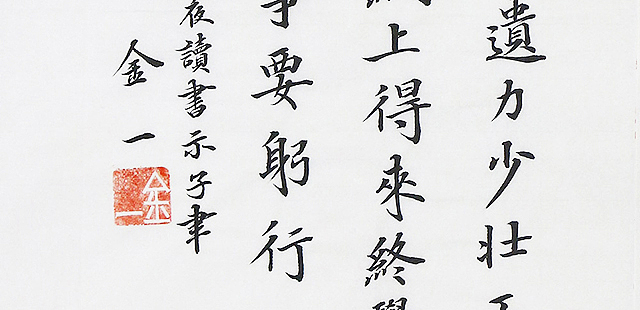 遺力少壯
上得來終
要躬行
夜讀書示子聿
金一
金一